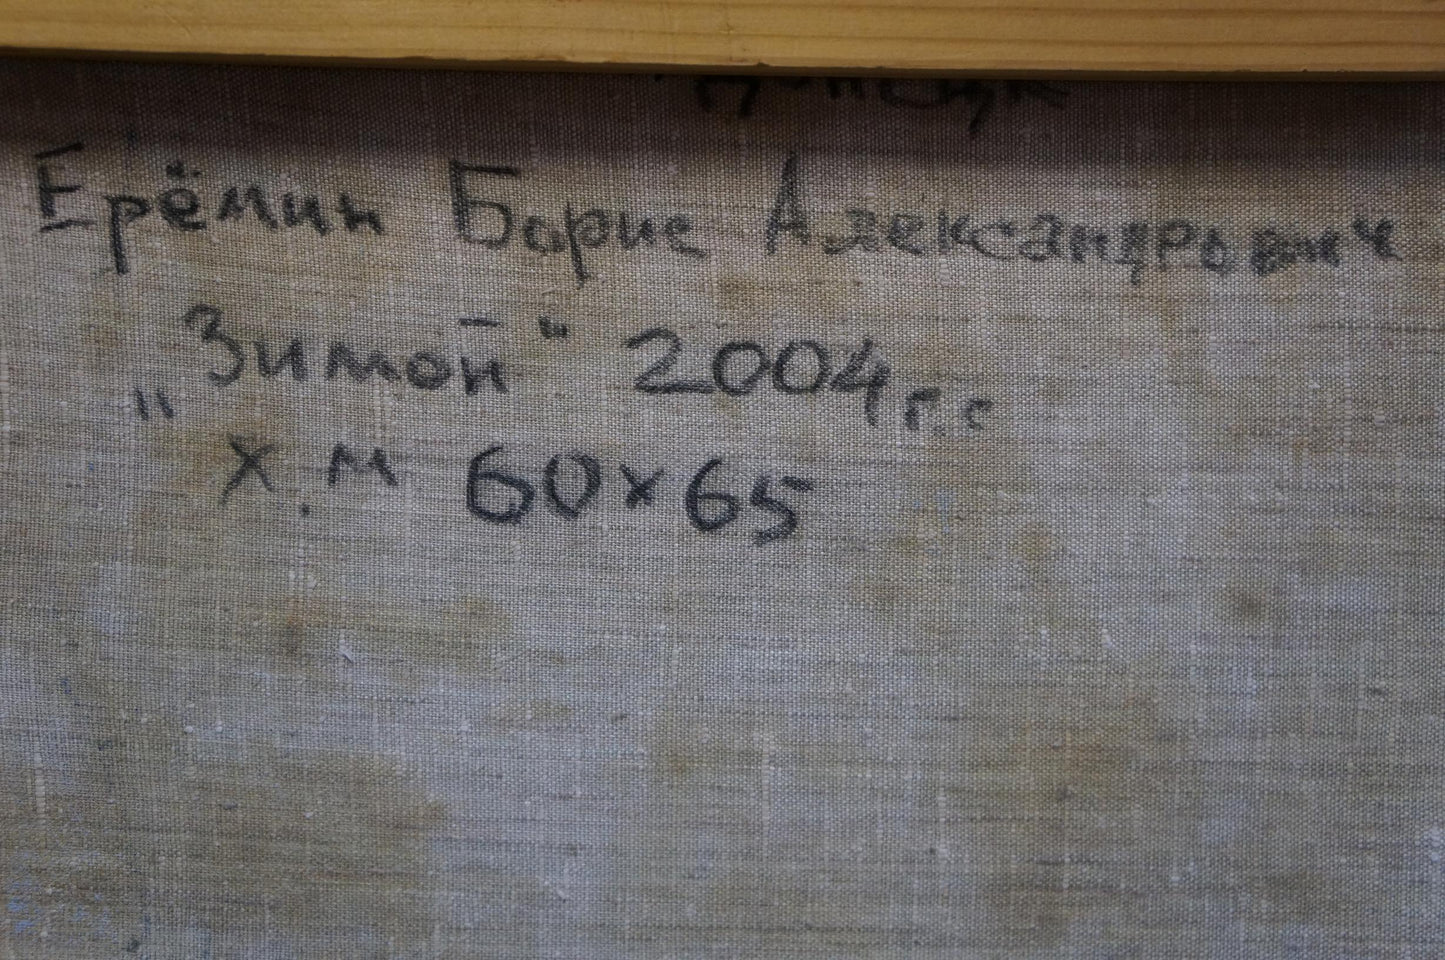 Ерёмин Борис Александрович
"Зимой" 2004 г.
х.м 60×65